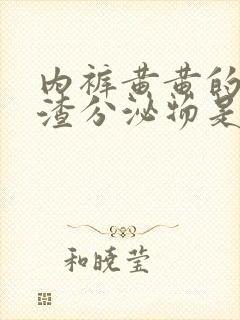 内裤黄黄的
渣分泌物是
和晓莹